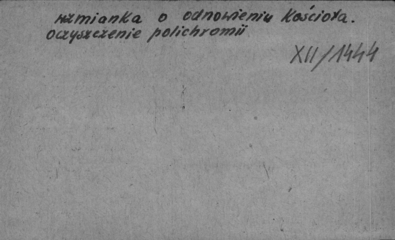 wzmianka o odnowieniu Kościoła.
oczyszczenie polichromii
XII/1444